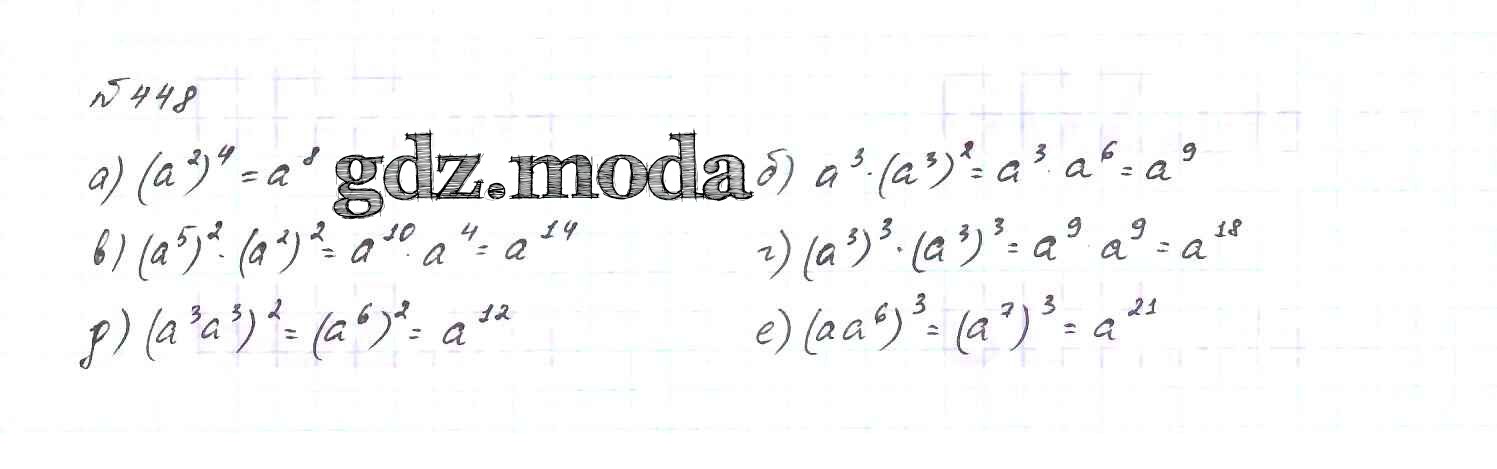 № 448
а) (a²)⁴ = a⁸ gdz.moda б) a³ · (a³)² = a³ · a⁶ = a⁹
в) (a⁵)² · (a²)² = a¹⁰ · a⁴ = a¹⁴ г) (a³)³ · (a³)³ = a⁹ · a⁹ = a¹⁸
д) (a³a³)² = (a⁶)² = a¹² е) (aa⁶)³ = (a⁷)³ = a²¹